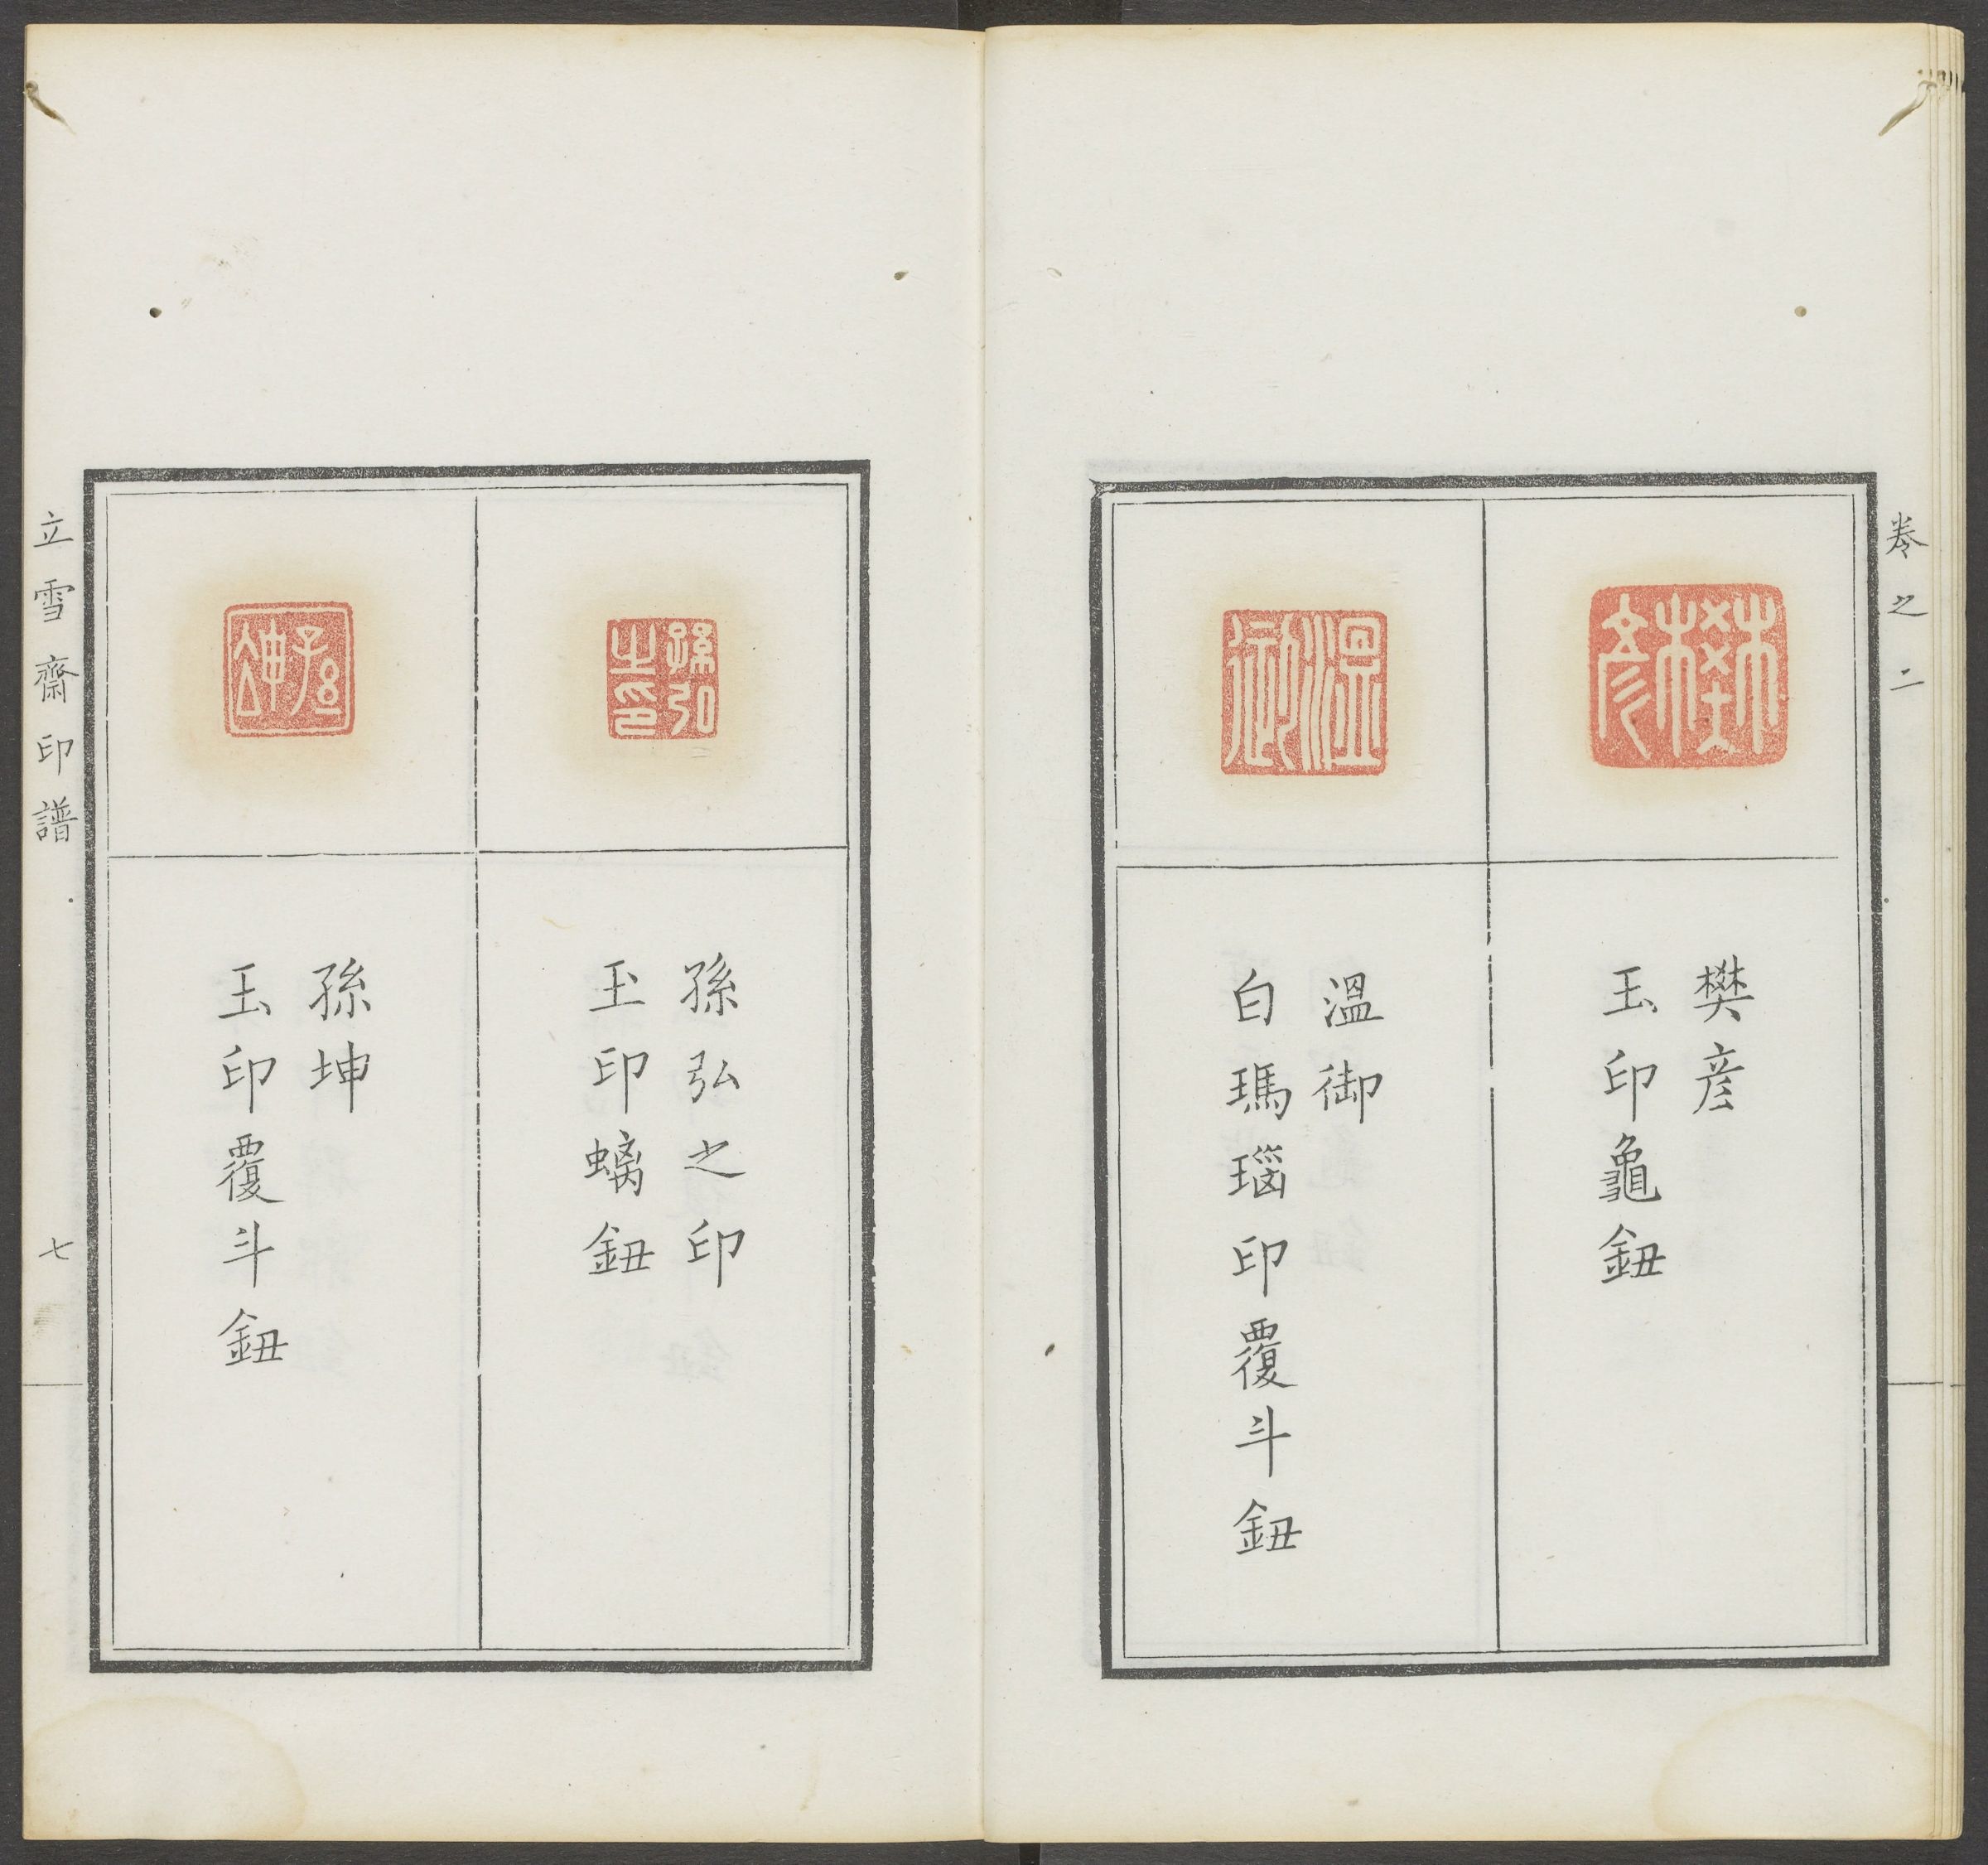 卷之二
樊彦
樊彦
玉印龜鈕
溫御
溫御
白瑪瑙印覆斗鈕
孫弘之印
孫弘之印
玉印螭鈕
孫坤
孫坤
玉印覆斗鈕
立雪齋印譜
七